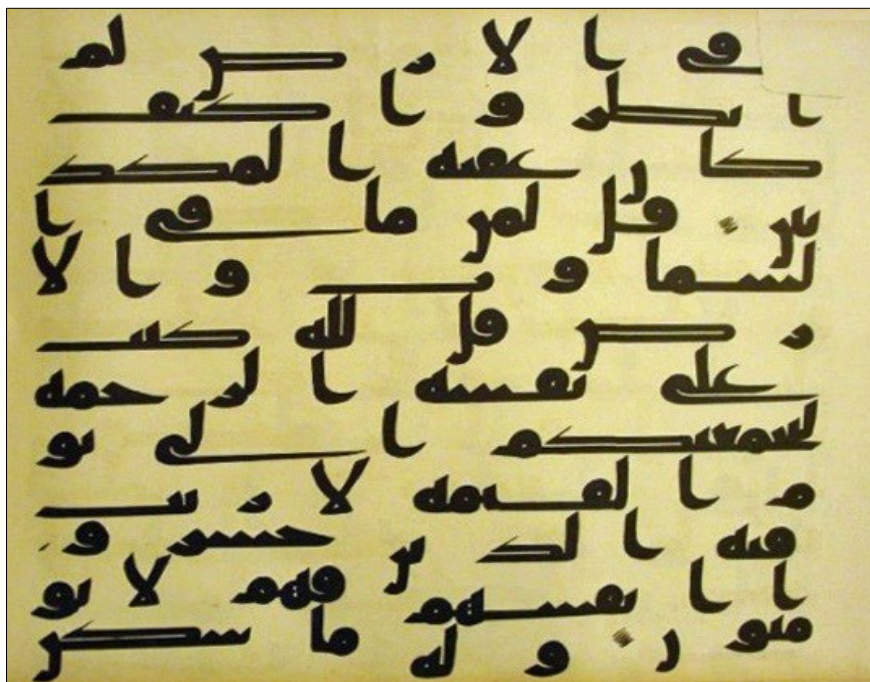 في الارض ثم
انظروا كيف
كان عقبه المكذ
بين قل لمن ما في ا
لسموت والا
رض قل لله كتب
على نفسه الرحمه
ليجمعنكم الى يو
م القيمه لا ريب
فيه الذين خسرو
ا انفسهم فهم لا يو
منون وله ما سكن